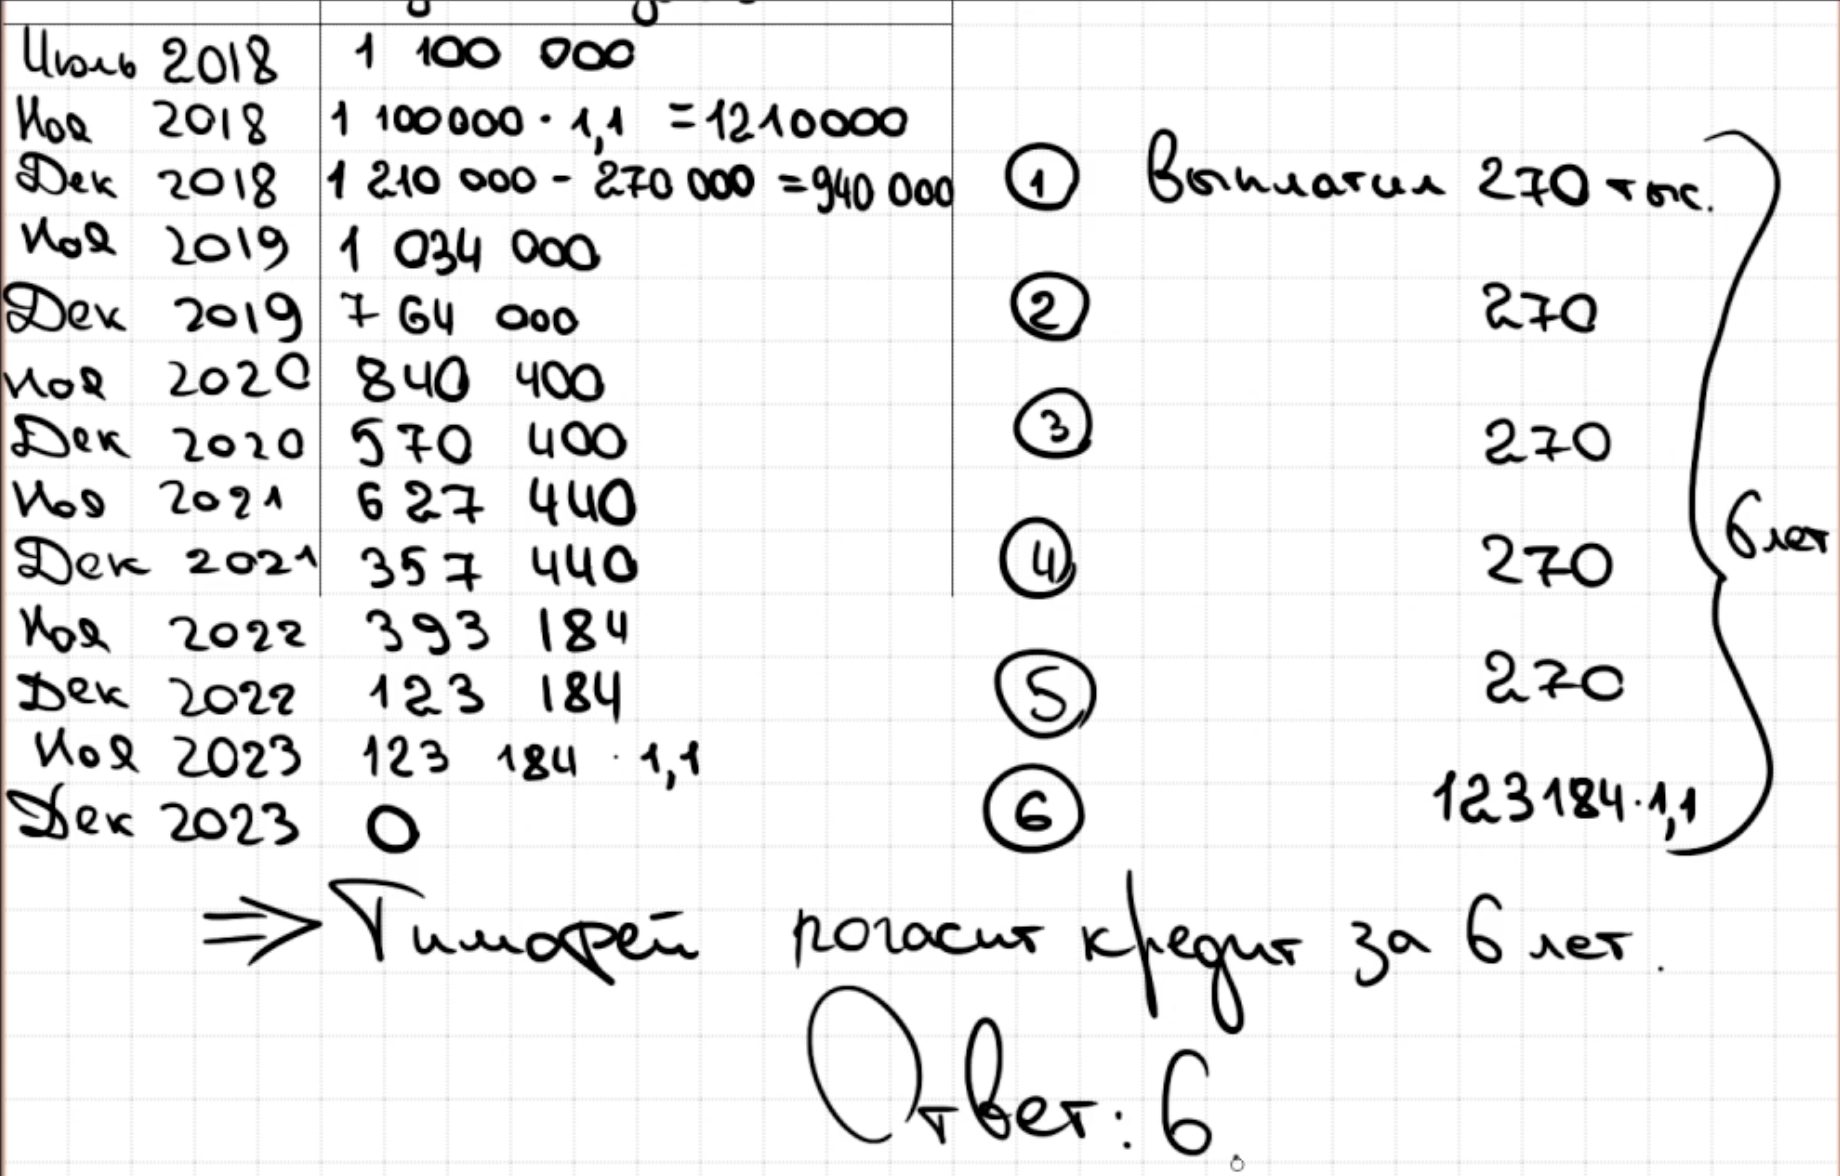 Июль 2018 1 100 000
Ноя 2018 1 100000 · 1,1 = 1210000
Дек 2018 1 210 000 - 270 000 = 940 000 ① Выплатил 270 тыс.
Ноя 2019 1 034 000
Дек 2019 764 000 ② 270
Ноя 2020 840 400
Дек 2020 570 400 ③ 270
Ноя 2021 627 440
Дек 2021 357 440 ④ 270
6 лет
Ноя 2022 393 184
Дек 2022 123 184 ⑤ 270
Ноя 2023 123 184 · 1,1
Дек 2023 0 ⑥ 123184·1,1
⇒ Тимофей погасит кредит за 6 лет.
Ответ: 6.